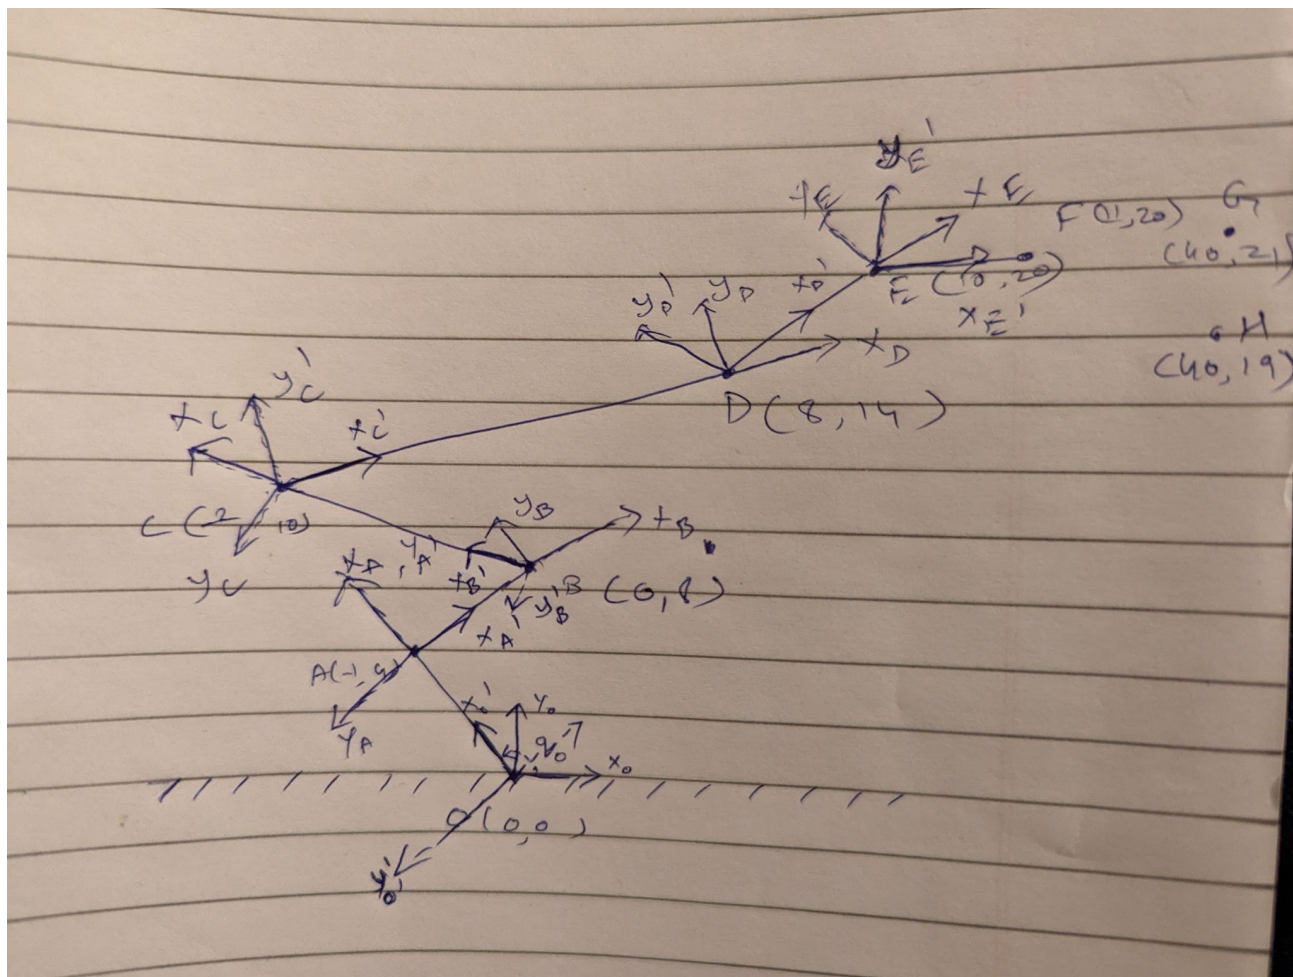 yE'
yE xE F(11,20) G
(40,21)
yD' yD xD' E(10,20)
xE'
xD H
(40,19)
D(8,14)
yC'
xC xC'
C(-2, 10) yB xB
xA, yA' xB' B(0,8)
yC yB'
xA'
A(-1,4)
x0' y0
yA q0
x0
O(0,0)
y0'